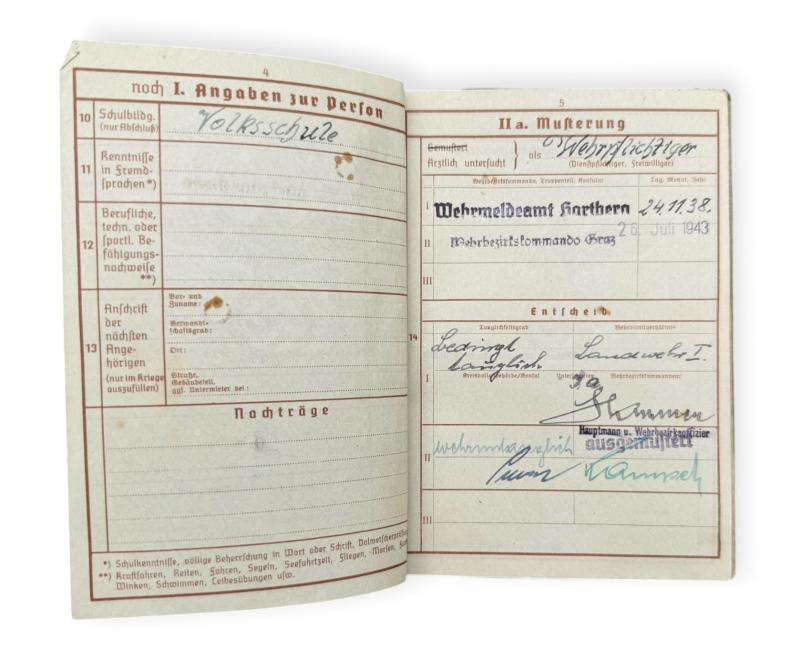 4
noch I. Angaben zur Person
10
Schulbildg.
(nur Abschluß)
Volksschule
11
Kenntnisse
in Fremd-
sprachen*)
12
Berufliche,
techn. oder
sportl. Be-
fähigungs-
nachweise
**)
13
Anschrift
der
nächsten
Ange-
hörigen
(nur im Kriege
auszufüllen)
Vor- und
Zuname:
Verwandt-
schaftsgrad:
Ort:
Straße,
Gebäudeteil,
ggf. Untermieter bei:
Nachträge
*) Schulkenntnisse, völlige Beherrschung in Wort oder Schrift,
**) Kraftfahren, Reiten, Fahren, Segeln, Seefahrtzeit, Fliegen, Morsen,
Winken, Schwimmen, Leibesübungen usw.
5
IIa. Musterung
Gemustert
Ärztlich untersucht
als Wehrpflichtiger
(Dienstpflichtiger, Freiwilliger)
Wehrbezirkskommando, Truppenteil, Konsulat
Tag, Monat, Jahr
I
Wehrmeldeamt Hartberg
24.11.38.
II
Wehrbezirkskommando Graz
26. Juli 1943
III
Entscheid
14
Tauglichkeitsgrad
Wehrdienstverhältnis
I
Bedingt
tauglich
Landwehr I.
Hauptmann u. Wehrbezirksoffizier
II
wehruntauglich
ausgemustert
III